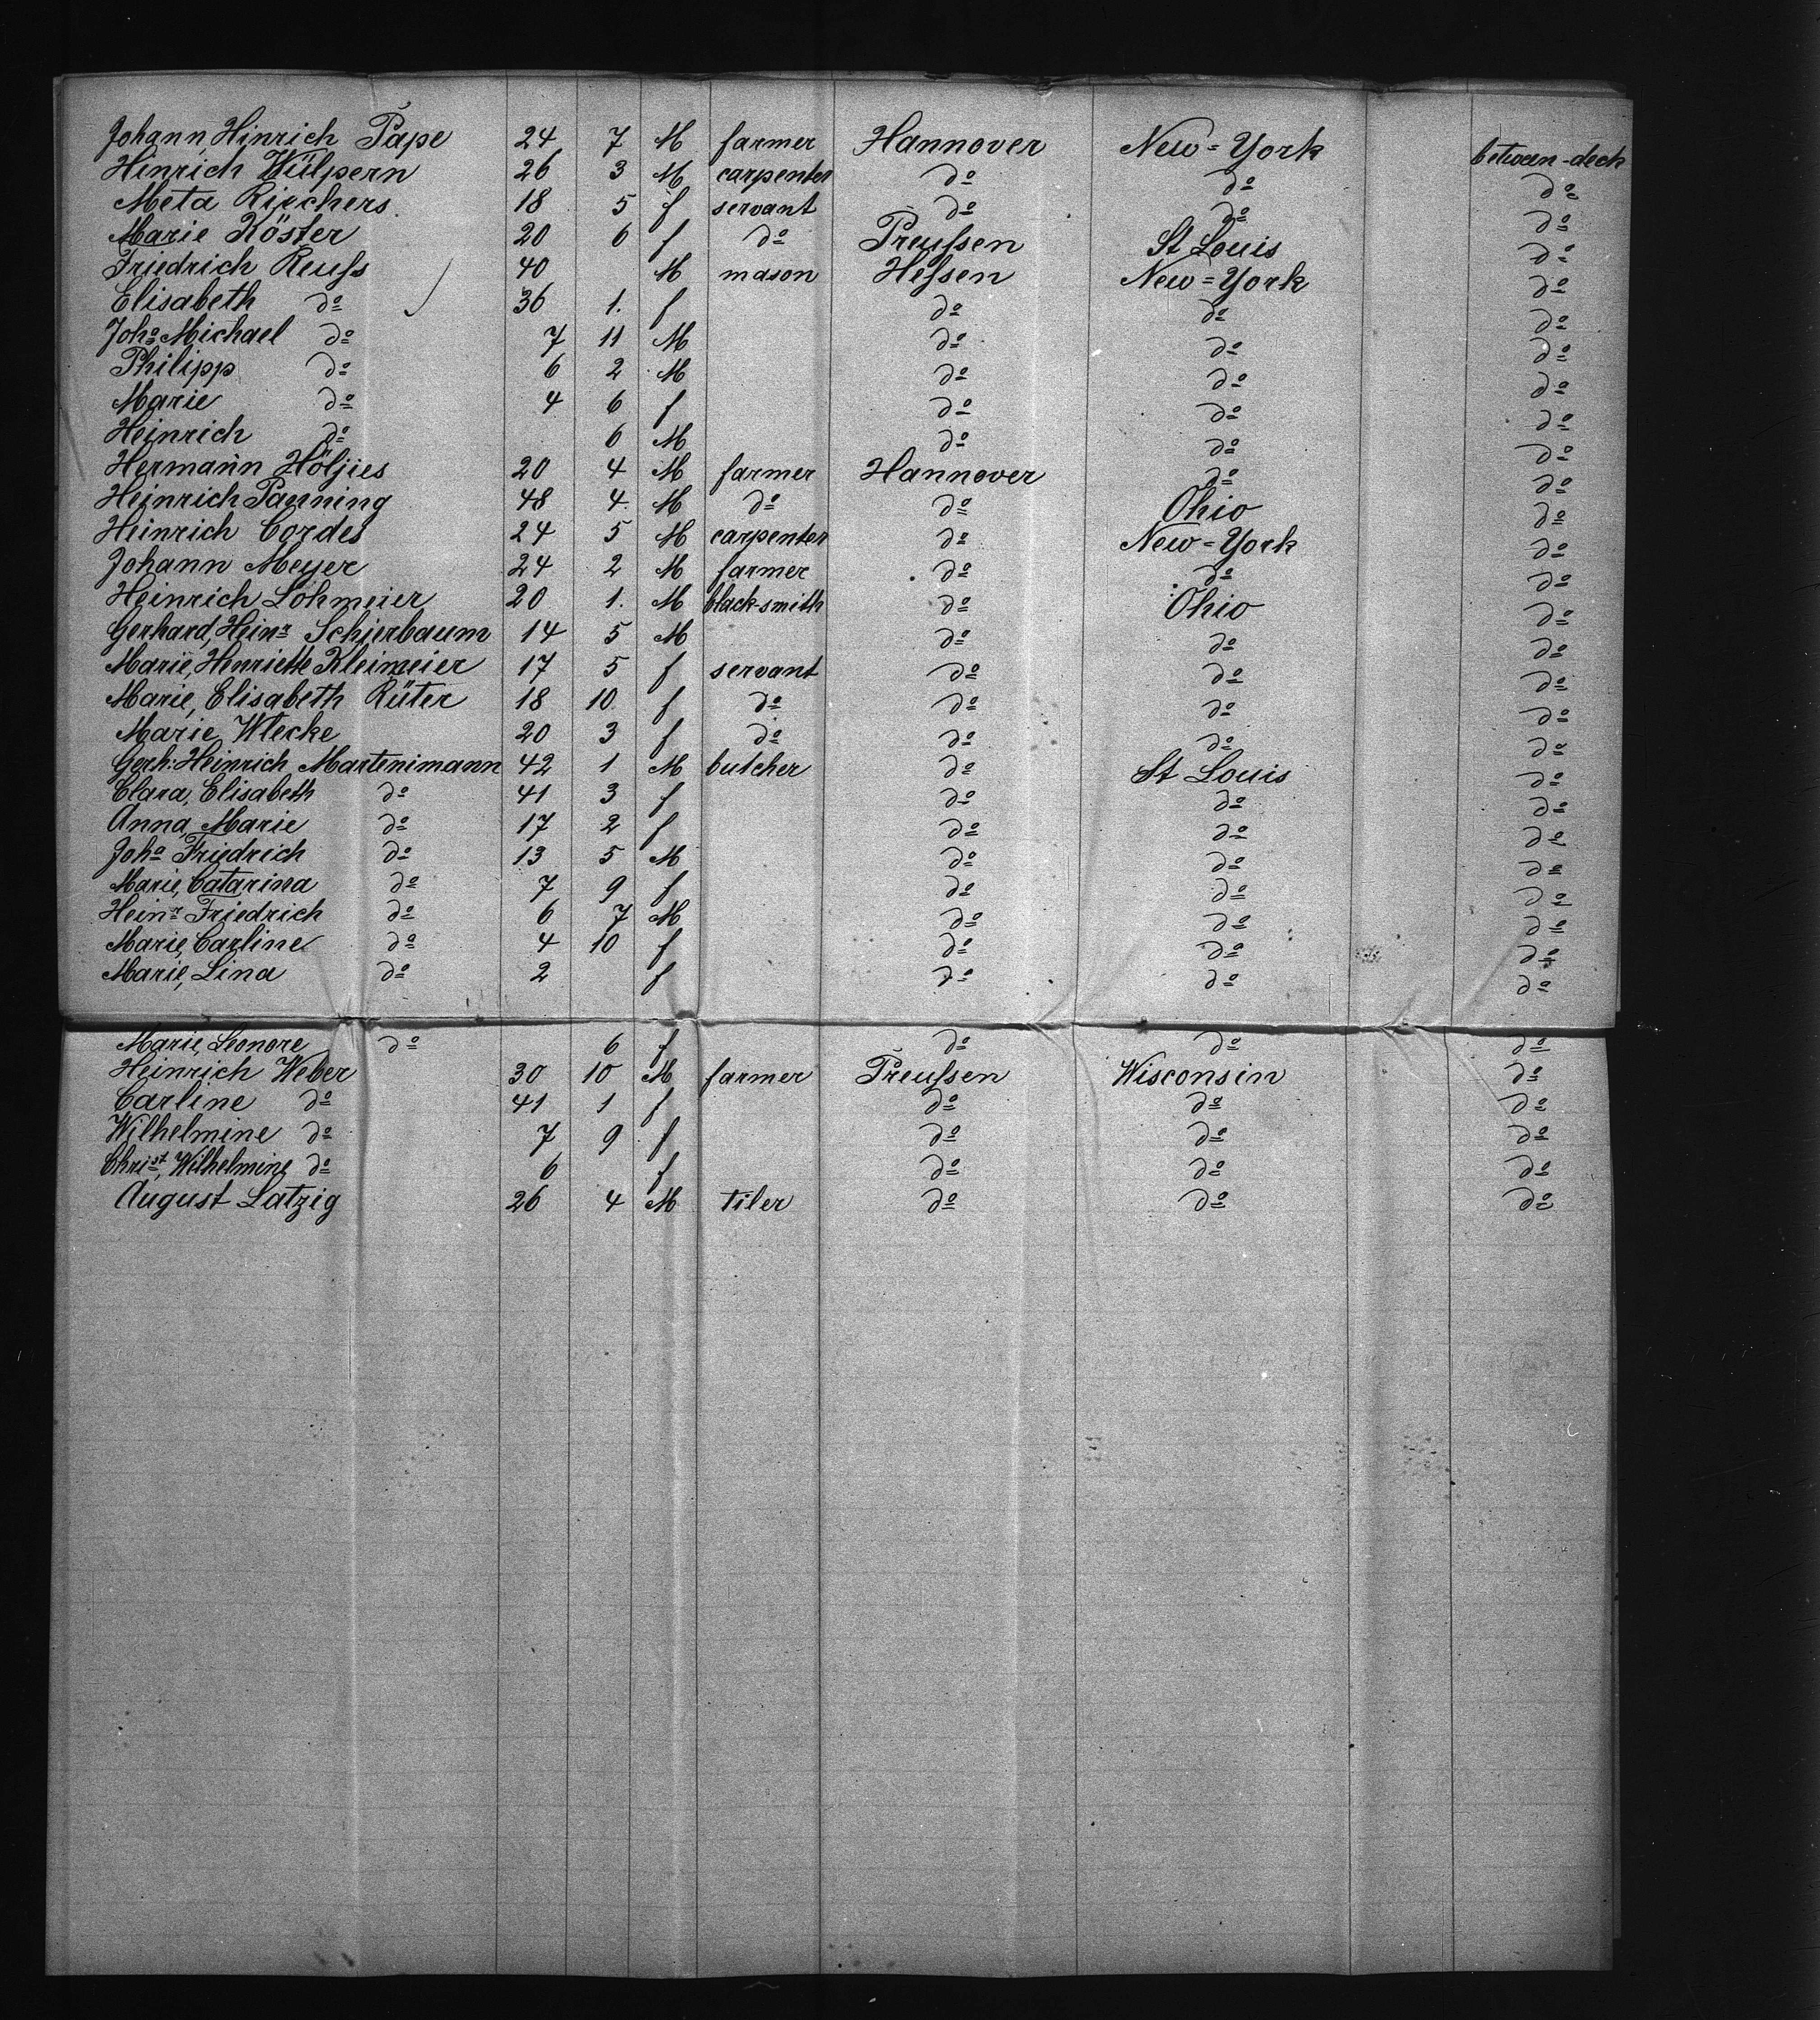 Johann, Hinrich Pape 24 7 M farmer Hannover New=York between-deck
Hinrich Wülpern 26 3 M carpenter do do do
Meta Rischers 18 5 f servant do do do
Marie Köster 20 6 f do Preußen St Louis do
Friedrich Reuss 40 M mason Hessen New=York do
Elisabeth do 36 1. f do do do
Joho Michael do 7 11 M do do do
Philipp do 6 2 M do do do
Marie do 4 6 f do do do
Heinrich do 6 M do do do
Hermann Höljies 20 4 M farmer Hannover do do
Heinrich Panning 48 4 M do do Ohio do
Heinrich Cordes 24 5 M carpenter do New=York do
Johann Meyer 24 2 M farmer do do do
Heinrich Lohmeier 20 1. M black-smith do Ohio do
Gerhard, Heinr Schierbaum 14 5 M do do do
Marie, Henriette Kleimeier 17 5 f servant do do do
Marie, Elisabeth Rüter 18 10 f do do do do
Marie Wlecke 20 3 f do do do do
Gerh: Heinrich Martenimann 42 1 M butcher do St Louis do
Clara, Elisabeth do 41 3 f do do do
Anna, Marie do 17 2 f do do do
Joho Friedrich do 13 5 M do do do
Marie, Catarina do 7 9 f do do do
Heinr Friedrich do 6 7 M do do do
Marie, Carline do 4 10 f do do do
Marie, Lina do 2 f do do do
Marie, Leonore do 6 f do do do
Heinrich Weber 30 10 M farmer Preußen Wisconsin do
Carline do 41 1 f do do do
Wilhelmine do 7 9 f do do do
Christ, Wilhelmine do 6 f do do do
August Latzig 26 4 M tiler do do do